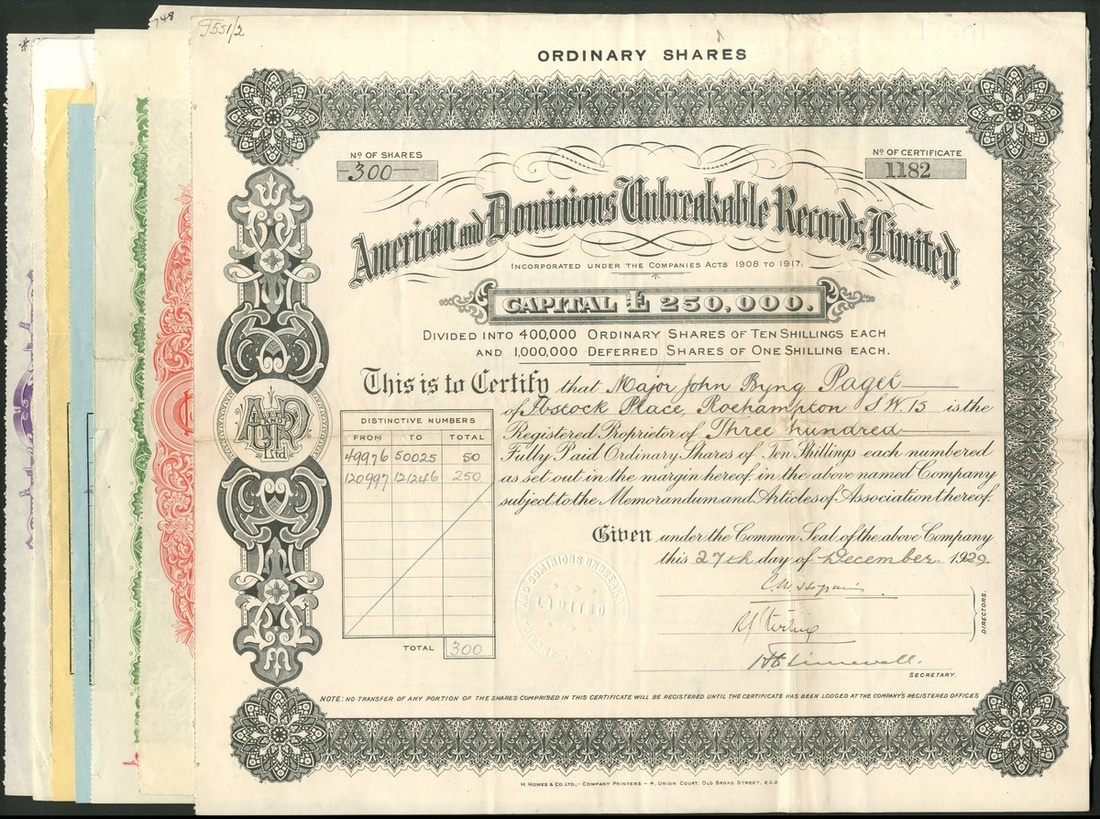 748
J551/2
ORDINARY SHARES
Nº OF SHARES
300
Nº OF CERTIFICATE
1182
American and Dominions Unbreakable Records Limited,
INCORPORATED UNDER THE COMPANIES ACTS 1908 TO 1917.
CAPITAL £ 250,000.
DIVIDED INTO 400,000 ORDINARY SHARES OF TEN SHILLINGS EACH
AND 1,000,000 DEFERRED SHARES OF ONE SHILLING EACH.
This is to Certify that Major John Byng Paget
of Ibstock Place, Roehampton SW15 is the
Registered Proprietor of Three hundred
Fully Paid Ordinary Shares of Ten Shillings each numbered
as set out in the margin hereof, in the above named Company
subject to the Memorandum and Articles of Association thereof.
DISTINCTIVE NUMBERS
FROM TO TOTAL
49976 50025 50
120997 121246 250
TOTAL 300
AND
Ltd
Given under the Common Seal of the above Company
this 27th day of December 1929.
DIRECTORS.
SECRETARY.
LIMITED
NOTE: NO TRANSFER OF ANY PORTION OF THE SHARES COMPRISED IN THIS CERTIFICATE WILL BE REGISTERED UNTIL THE CERTIFICATE HAS BEEN LODGED AT THE COMPANY'S REGISTERED OFFICES
H. HOWES & CO. LTD., - COMPANY PRINTERS - 4, UNION COURT, OLD BROAD STREET, E.C.2.